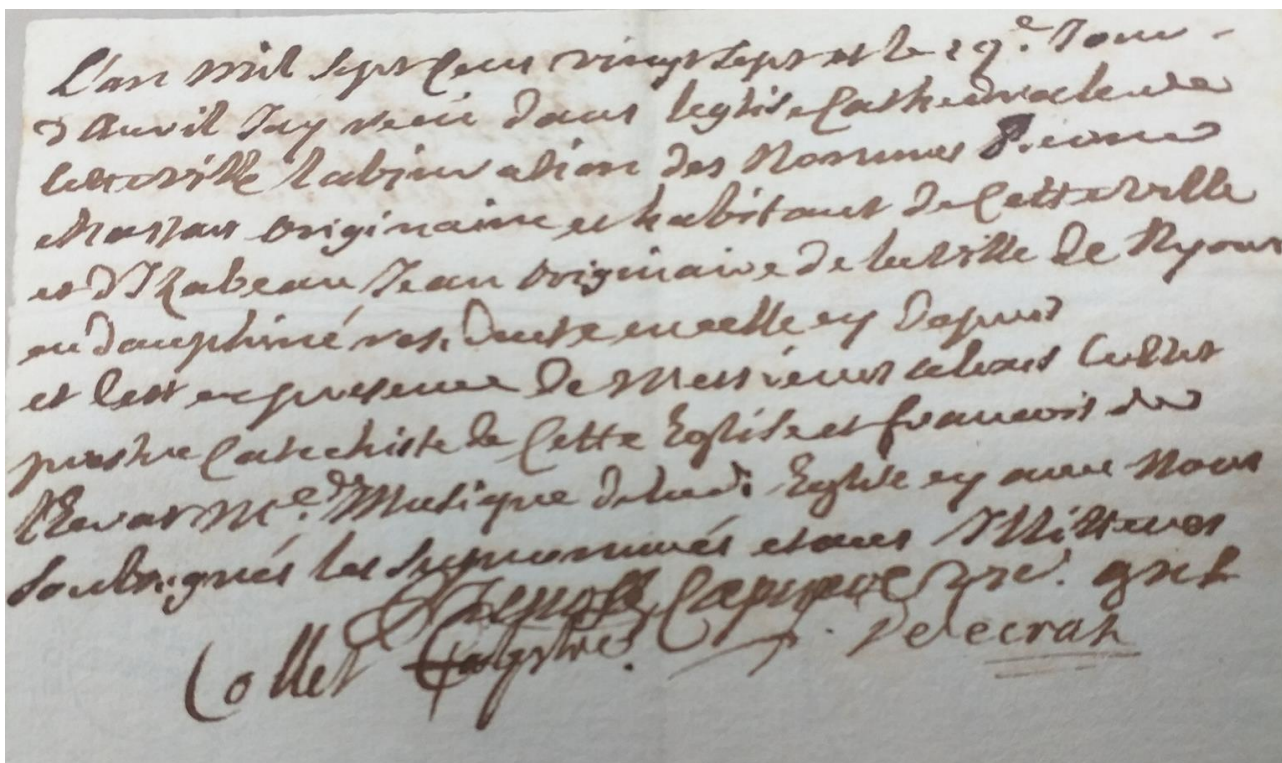 L'an mil sept cens vingt sept et le 29e. Jour
d'Auvril Jay reçeu dans leglise Cathedrale de
cette ville labjuration des Nommes Pierre
originaire et habitant de Cette Ville
et d'Izabeau Jean originaire de la Ville de Nyons
en dauphiné residente en celle cy depuis
et cest en presence de Messieurs Collet
prestre Catechiste de Cette Eglise et francois de
Me. de Musique de lad. Eglise qui avec Nous
soubsignés les susnommés illitterés
Capiscol gnel
Collet